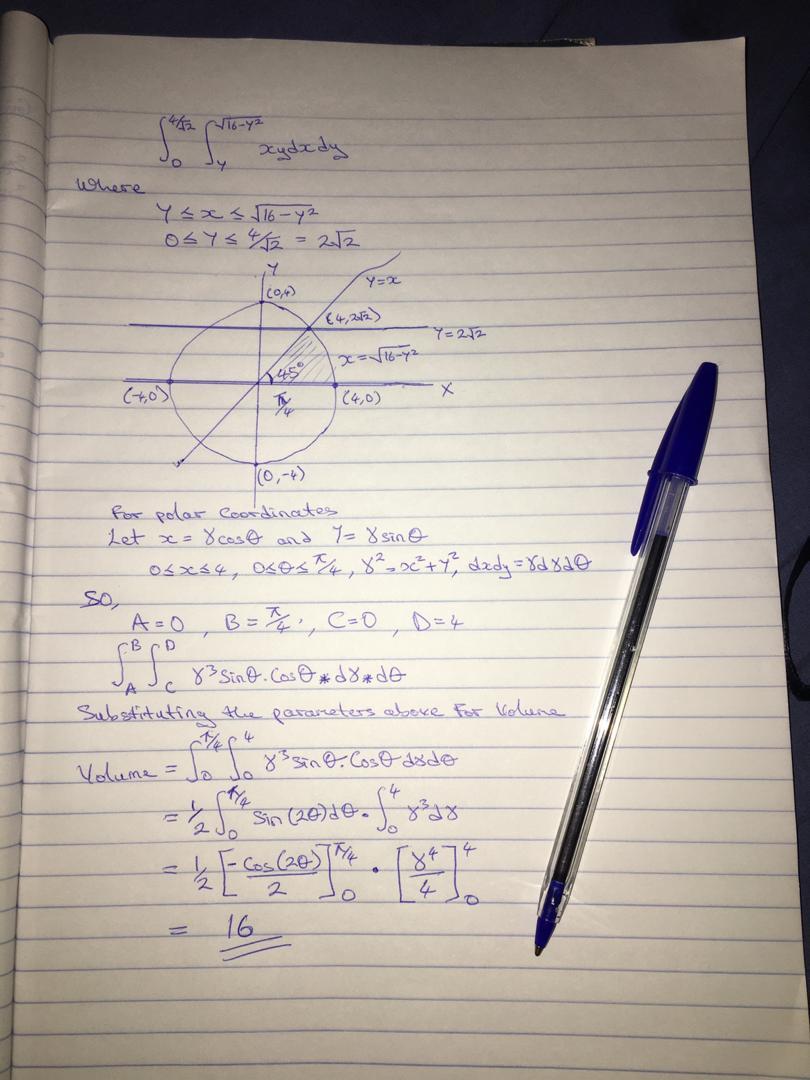 ∫₀^{4/√2} ∫_y^{√16-y²} xydxdy
Where
y ≤ x ≤ √16-y²
0 ≤ y ≤ 4/√2 = 2√2
y
(0,4)
y=x
(4,2√2)
y=2√2
x=√16-y²
45°
π/4
(-4,0)
(4,0)
X
(0,-4)
For polar Coordinates
Let x = rcosθ and y = rsinθ
0≤x≤4, 0≤θ≤π/4, r²=x²+y², dxdy=rdrdθ
So,
A=0, B=π/4, C=0, D=4
∫_A^B ∫_C^D r³sinθ.Cosθ*dr*dθ
Substituting the parameters above For Volume
Volume = ∫₀^{π/4} ∫₀^4 r³sinθ.Cosθdrdθ
= 1/2 ∫₀^{π/4} Sin(2θ)dθ . ∫₀^4 r³dr
= 1/2 [-Cos(2θ)/2]₀^{π/4} . [r⁴/4]₀^4
= 16